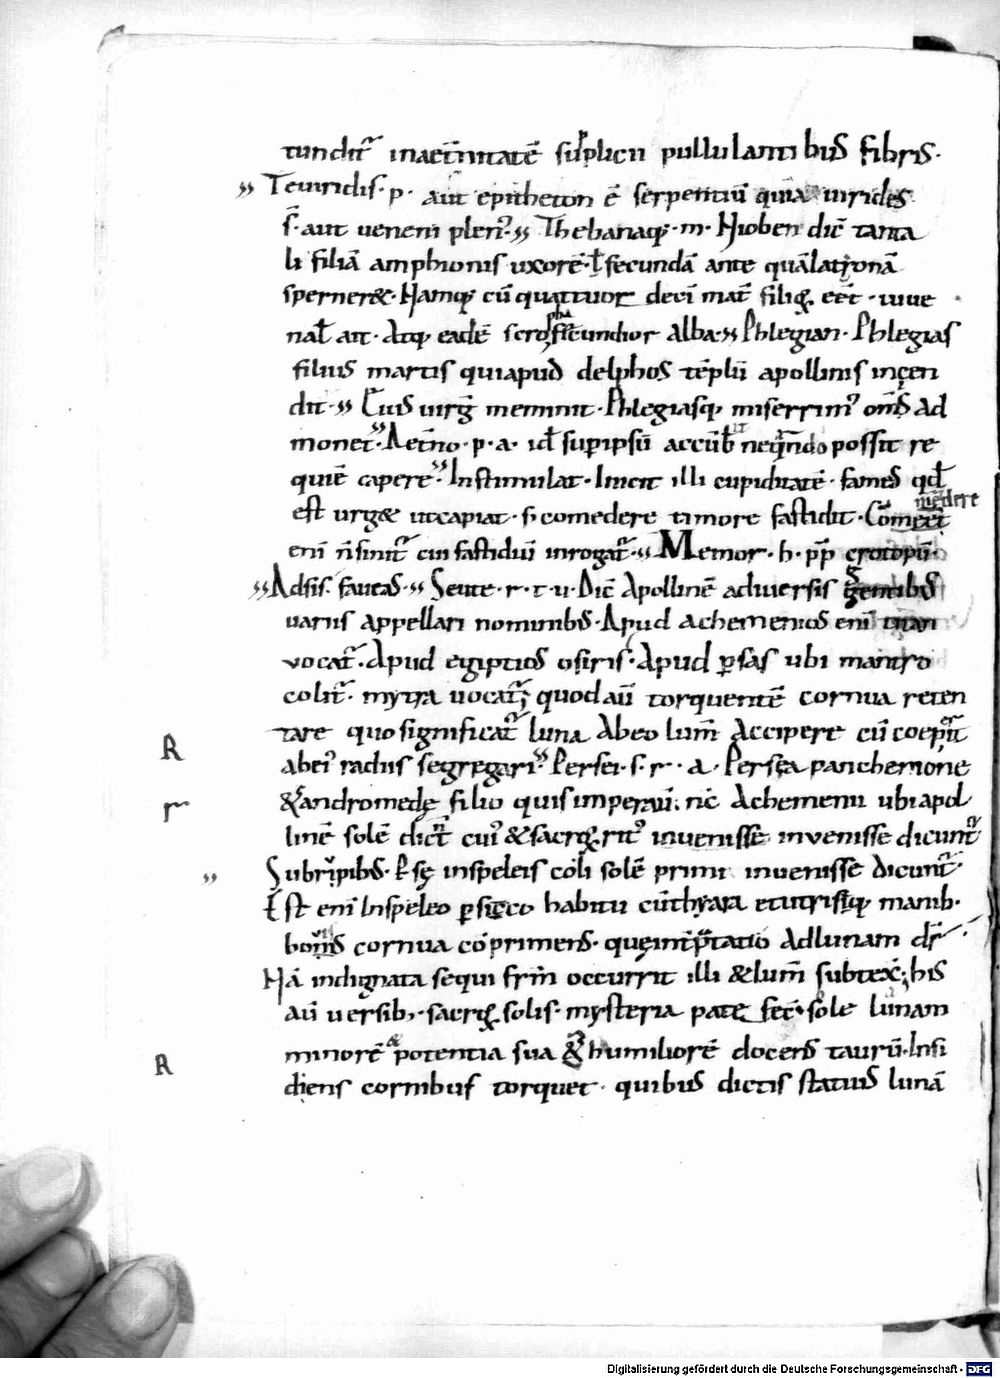 tundit᷑ inaet̄nitatē supplicii pullulantibus fibris.
„ Teuiridis. p. aut epitheton ē serpentiū quia uirides
s̄. aut ueneni pleni. „ Thebanaq;. m. Nioben dic̄ tanta
li filiā amphionis uxorē. ł fecundā ante quā latonā
sperner&. Namq; cū quattuor deci mat̄ filiǫ; eēt. iuue
nał ait. Atq; eadē scropha fecundior alba. „ Phlegian. Phlegias
filius martis qui apud delphos tēplū apollinis incen
dit. „ Cuiꝰ uirḡ meminit. Phlegiasq; miserrimꝰ om̄s ad
monet. „ Aet̄no. p. a. id ē sup ipsū accūbit neq̄ndo possit re
quiē capere. „ Instimulat. Inicit illi cupiditatē. fames qd̄
est urg& ut capiat. si comedere timore fastidit. Com̄
medere
enī n̄ sinit᷑ cui fastidiū inrogat᷑. „ Memor. h. p̄p crotopū.
„ Adsis. faueas. „ Seu te. r. t. u. Dic̄ Apollinē a diuersis gentibus
uariis appellari nominibus. Apud achemenios enī titan
vocat᷑. Apud egiptios osiris. Apud ꝑsas ubi in antro
colit᷑. mytra uocat᷑; quod aū torquentē cornua reten
tare quo significat᷑ luna ab eo lum̄ Accipere cū coeperit
R
ab eiꝰ radiis segregari. „ Persei. s. r. a. Persea panchemone
&andromedę filio qui s imperau. nc̄ Achemenii ubi apol
r
linē solē dict̄ cuiꝰ & sacroǫ; ritꝰ inuenisse invenisse dicunt᷑
„ Sub rupibus. Psę in speleis coli solē primi inuenisse dicunt᷑.
Est enī In speleo ꝑsico habitu cū thyara et utrisq; manib.
bouis cornua cōprimens. quę interp̄tatio Ad lunam dr̄.
Nā indignata sequi frm̄ occurrit illi & lum̄ subtex;. his
aū uersib;. sacroǫ; solis. mysteria pate fec̄. sole lunam
minorē & potentia sua & humiliorē docens taurū. Insi
R
diens cornibus torquet. quibus dictis statius lunā
Digitalisierung gefördert durch die Deutsche Forschungsgemeinschaft - DFG